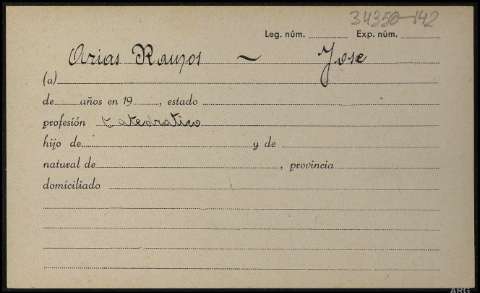 34350-142
Leg. núm. Exp. núm.
Arias Ramos — Jose
(a)
de años en 19 , estado
profesión Catedratico
hijo de y de
natural de , provincia
domiciliado
ARG